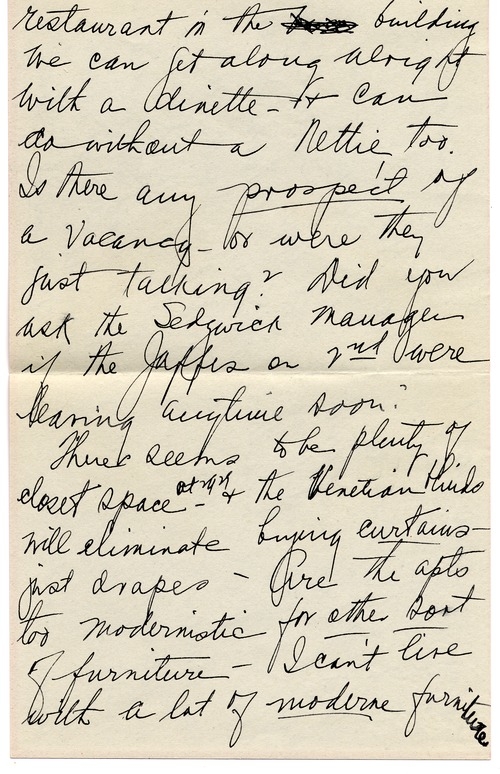 restaurant in the building
We can get along alright
with a dinette - & can
do without a Nettie too.
Is there any prospect of
a vacancy - or were they
just talking? Did you
ask the Sedgwick manager
if the Jaffes on 2nd were
leaving anytime soon?
There seems to be plenty of
closet space - & the Venetian blinds
will eliminate buying curtains -
just drapes - Are the apts
too modernistic for other sort
of furniture - I can't live
with a lot of moderne furniture